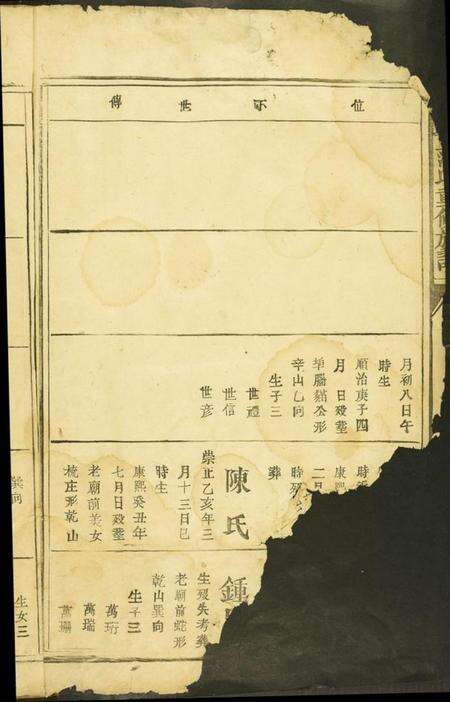 位下世傳
月初八日午
時生
順治庚子四
月 日歿塟
辛山乙向
生子三
世禮
世信
世彥
時
康熙
二月
時歿
葬
陳氏
崇禎乙亥年三
月十三日巳
時生
康熙癸丑年
七月日歿塟
老廟前美女
梳庄形乾山
巽向
鍾
生歿失考葬
老廟前蛇形
乾山巽向
生子三
萬珩
萬瑞
萬珊
生女三